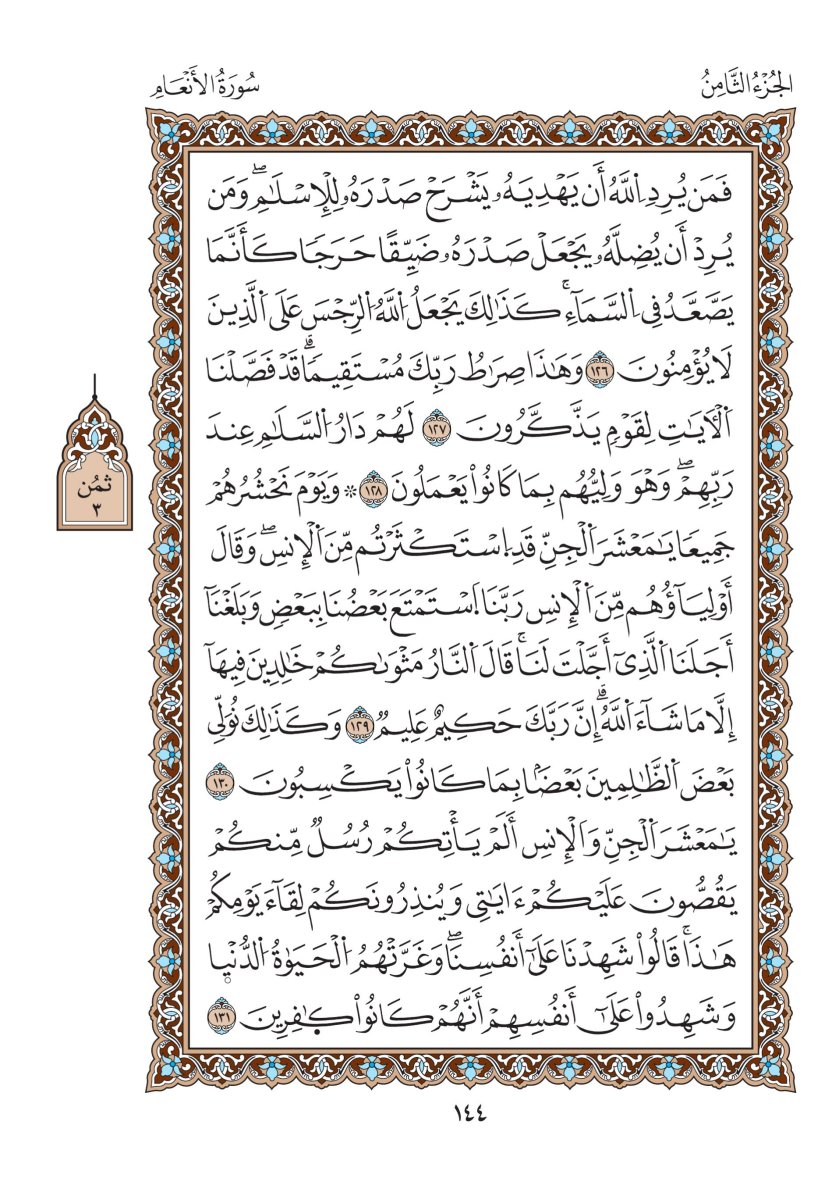 الجُزْءُ الثَّامِنُ
سُورَةُ الأَنْعَامِ
فَمَن يُرِدِ اِ۬للَّهُ أَن يَهْدِيَهُۥ يَشْرَحْ صَدْرَهُۥ لِلْإِسْلَٰمِۖ وَمَن
يُرِدْ أَن يُضِلَّهُۥ يَجْعَلْ صَدْرَهُۥ ضَيِّقًا حَرَجَا كَأَنَّمَا
يَصَّعَّدُ فِي اِ۬لسَّمَآءِۚ كَذَٰلِكَ يَجْعَلُ اُ۬للَّهُ اُ۬لرِّجْسَ عَلَى اَ۬لَّذِينَ
لَا يُؤْمِنُونَ ١٢٦ وَهَٰذَا صِرَٰطُ رَبِّكَ مُسْتَقِيمٗاۗ قَدْ فَصَّلْنَا
اَ۬لْأٓيَٰتِ لِقَوْمٖ يَذَّكَّرُونَ ١٢٧ لَهُمْ دَارُ اُ۬لسَّلَٰمِ عِندَ
رَبِّهِمْۖ وَهْوَ وَلِيُّهُم بِمَا كَانُواْ يَعْمَلُونَ ١٢٨ ۞ وَيَوْمَ نَحْشُرُهُمْ
جَمِيعٗا يَٰمَعْشَرَ اَ۬لْجِنِّ قَدِ اِ۪سْتَكْثَرْتُم مِّنَ اَ۬لْإِنسِۖ وَقَالَ
أَوْلِيَآؤُهُم مِّنَ اَ۬لْإِنسِ رَبَّنَا اَ۪سْتَمْتَعَ بَعْضُنَا بِبَعْضٖ وَبَلَغْنَآ
أَجَلَنَا اَ۬لَّذِيٓ أَجَّلْتَ لَنَاۚ قَالَ اَ۬لنَّارُ مَثْوَىٰكُمْ خَٰلِدِينَ فِيهَآ
إِلَّا مَا شَآءَ اَ۬للَّهُۗ إِنَّ رَبَّكَ حَكِيمٌ عَلِيمٞ ١٢٩ وَكَذَٰلِكَ نُوَلِّي
بَعْضَ اَ۬لظَّٰلِمِينَ بَعْضَۢا بِمَا كَانُواْ يَكْسِبُونَ ١٣٠
يَٰمَعْشَرَ اَ۬لْجِنِّ وَالْإِنسِ أَلَمْ يَأْتِكُمْ رُسُلٞ مِّنكُمْ
يَقُصُّونَ عَلَيْكُمْ ءَايَٰتِي وَيُنذِرُونَكُمْ لِقَآءَ يَوْمِكُمْ
هَٰذَاۚ قَالُواْ شَهِدْنَا عَلَىٰٓ أَنفُسِنَاۖ وَغَرَّتْهُمُ اُ۬لْحَيَوٰةُ اُ۬لدُّنْيَا
وَشَهِدُواْ عَلَىٰٓ أَنفُسِهِمْ أَنَّهُمْ كَانُواْ كَٰفِرِينَ ١٣١
ثمُن
٣
١٤٤